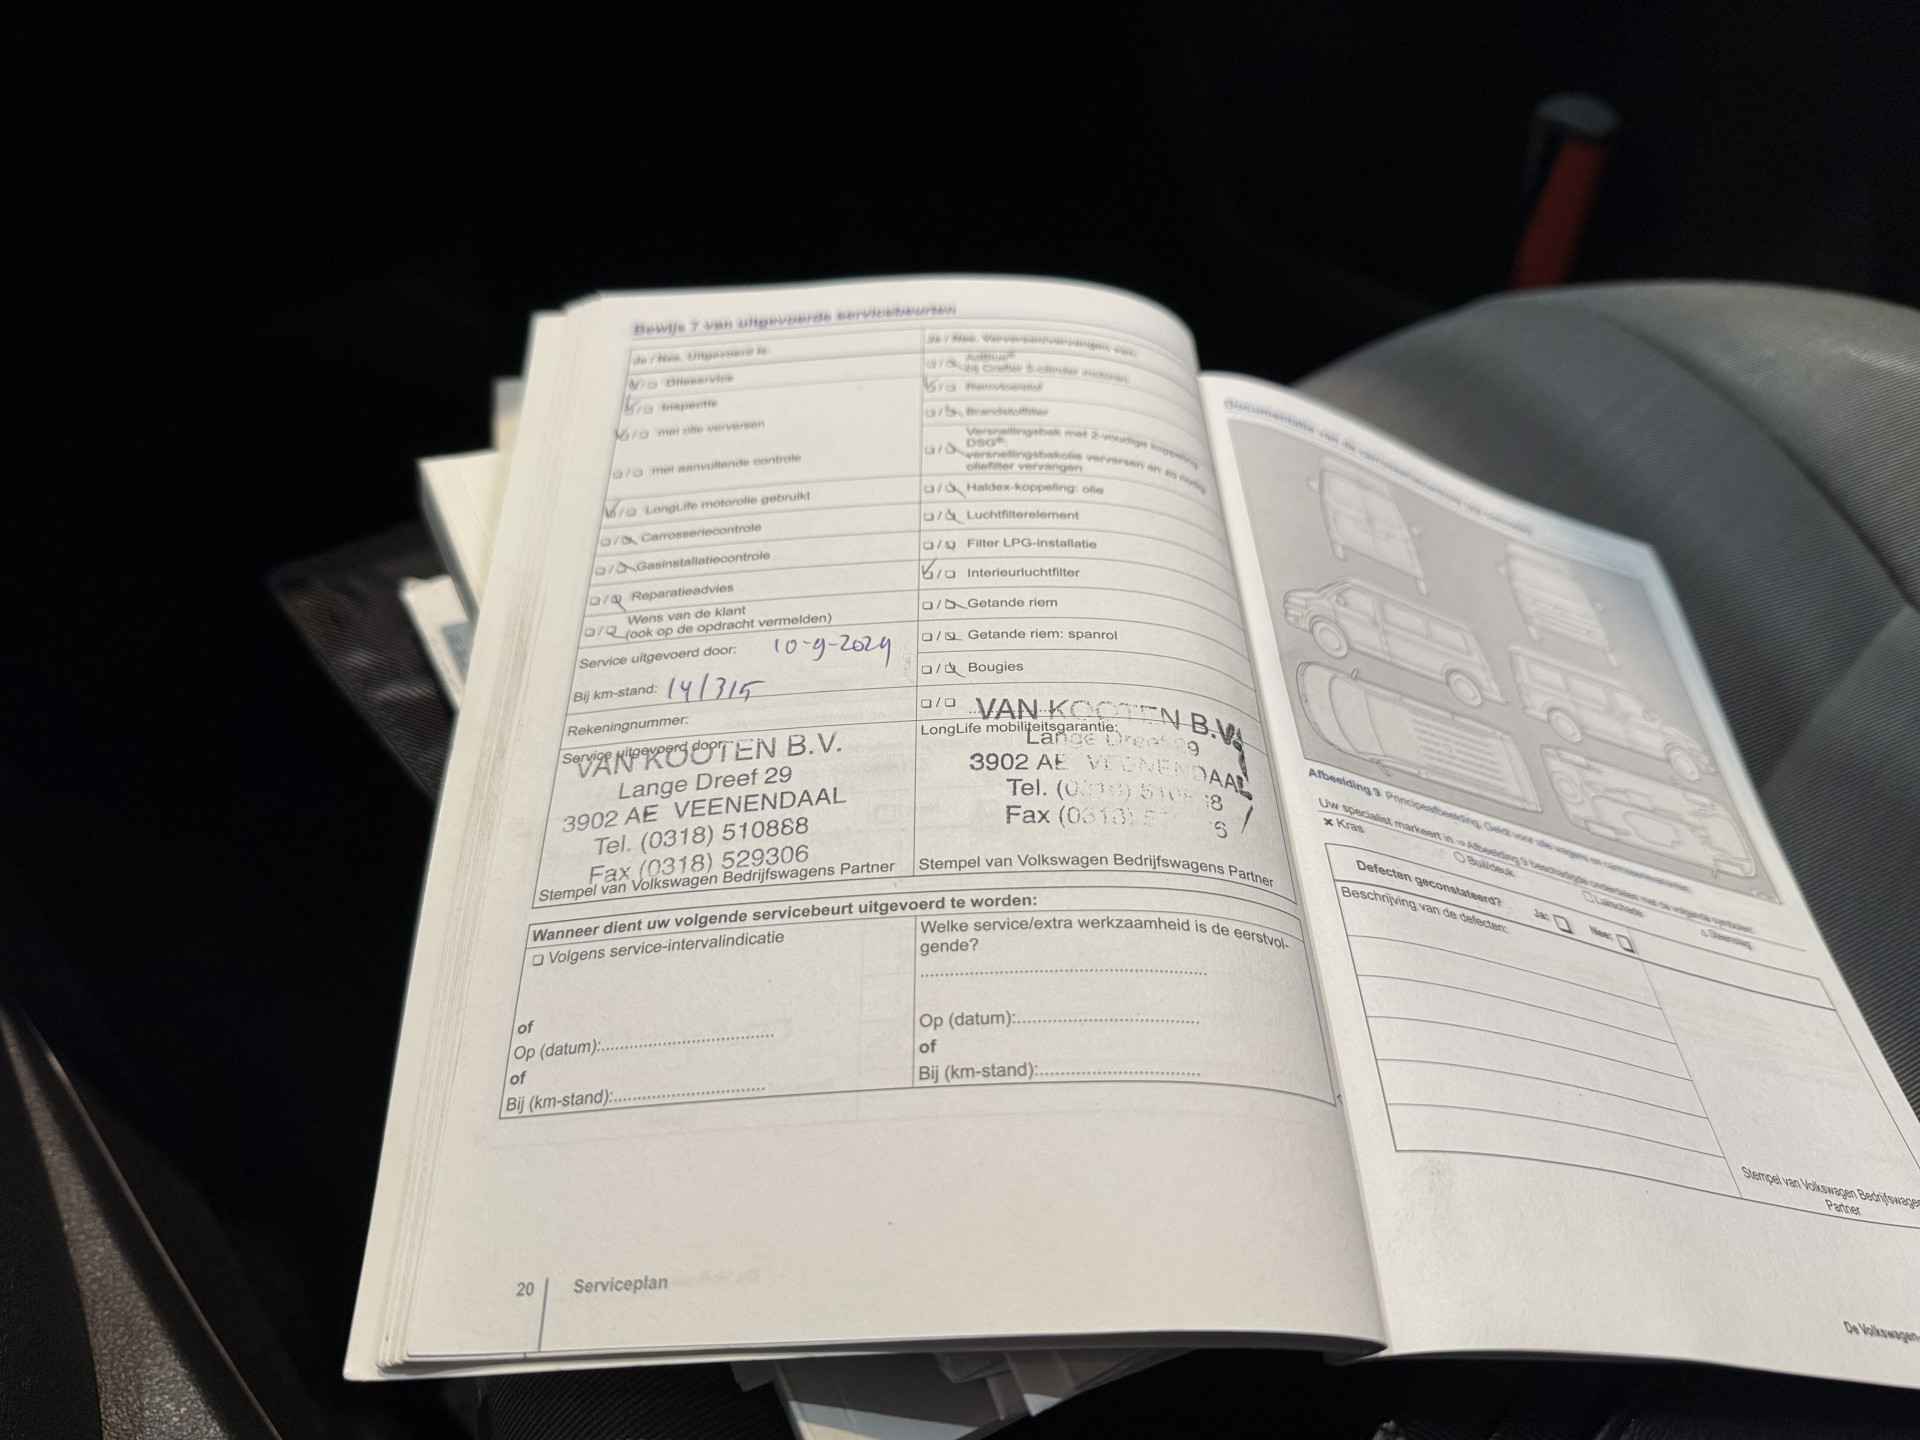 Bewijs 7 van uitgevoerde servicebeurten
Ja / Nee. Uitgevoerd is:
Olieservice
Inspectie
met olie verversen
met aanvullende controle
LongLife motorolie gebruikt
Carrosseriecontrole
Gasinstallatiecontrole
Reparatieadvies
Wens van de klant
(ook op de opdracht vermelden)
Service uitgevoerd door: 10-9-2024
Bij km-stand: 141315
Rekeningnummer:
Service uitgevoerd door:
VAN KOOTEN B.V.
Lange Dreef 29
3902 AE VEENENDAAL
Tel. (0318) 510868
Fax (0318) 529306
Stempel van Volkswagen Bedrijfswagens Partner
AdBlue®
bij Crafter 5-cilinder motoren
Remvloeistof
Brandstoffilter
Versnellingsbak met 2-voudige koppeling
DSG®:
versnellingsbakolie verversen en zo nodig
oliefilter vervangen
Haldex-koppeling: olie
Luchtfilterelement
Filter LPG-installatie
Interieurluchtfilter
Getande riem
Getande riem: spanrol
Bougies
LongLife mobiliteitsgarantie:
VAN KOOTEN B.V.
Lange Dreef 29
3902 AE VEENENDAAL
Tel.
Fax
Stempel van Volkswagen Bedrijfswagens Partner
Wanneer dient uw volgende servicebeurt uitgevoerd te worden:
Volgens service-intervalindicatie
of
Op (datum):
of
Bij (km-stand):
Welke service/extra werkzaamheid is de eerstvol-
gende?
Op (datum):
of
Bij (km-stand):
20 Serviceplan
Afbeelding 9 Principeafbeelding: Geldt voor alle wagens en carrosserievarianten
Uw specialist markeert in ⇒ Afbeelding 9 beschadigde onderdelen met de volgende symbolen:
× Kras
Buil/deuk
Lakschade
Steenslag
Defecten geconstateerd? Ja: Nee:
Beschrijving van de defecten:
Stempel van Volkswagen Bedrijfswagens
Partner
De Volkswagen-